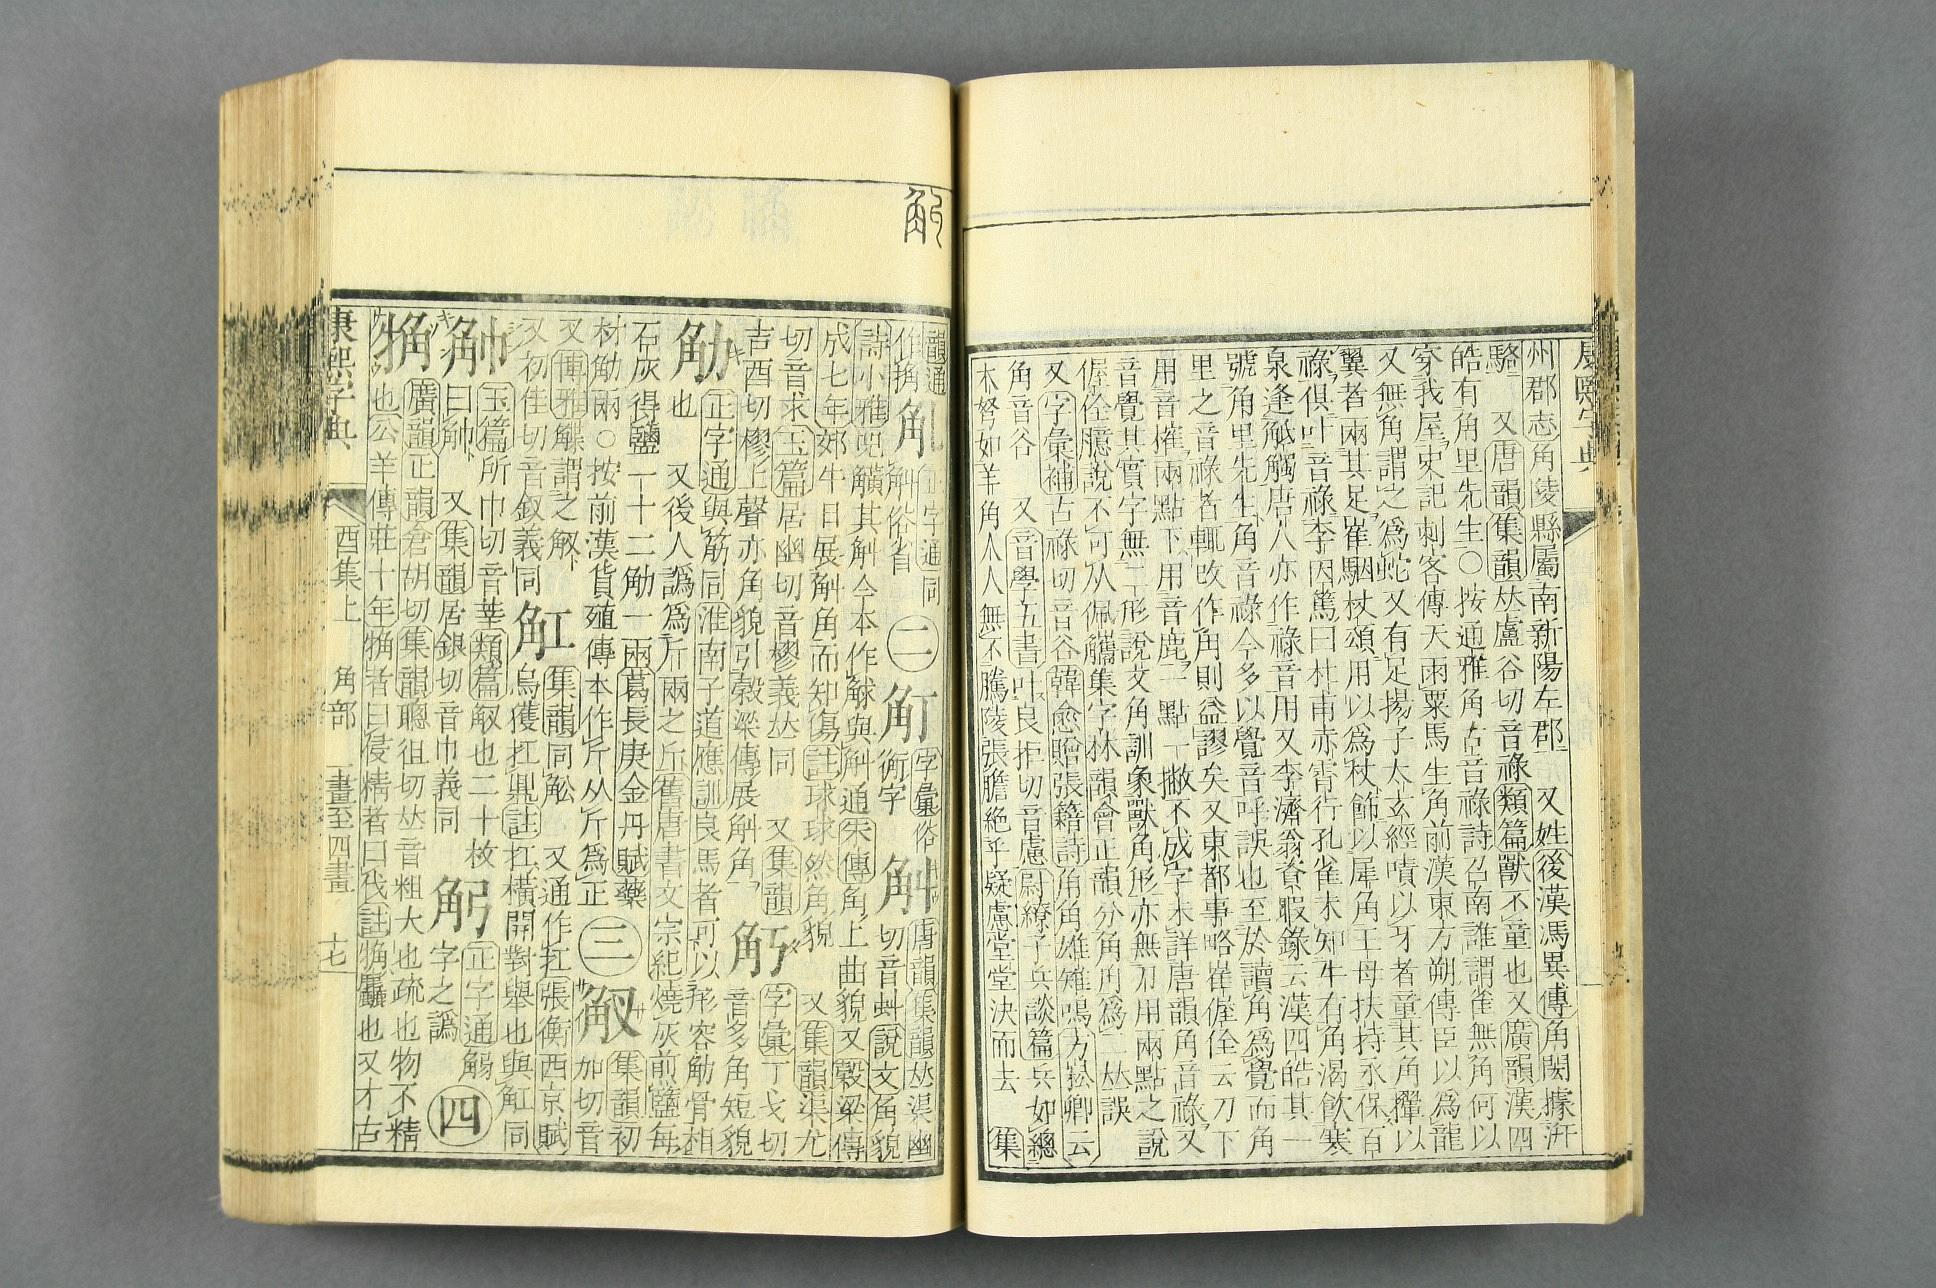 州郡志角陵縣屬南新陽左郡 又姓後漢馮異傳角閎據汧
駱 又唐韻集韻𠀤盧谷切音祿類篇獸不童也又廣韻漢四
皓有角里先生○按通雅角古音祿詩召南誰謂雀無角何以
穿我屋史記刺客傳天雨粟馬生角前漢東方朔傳臣以爲龍
又無角謂之爲蛇又有足揚子太玄經嘖以牙者童其角攆以
翼者兩其足崔駰杖頌用以爲杖飾以犀角王母扶持永保百
祿俱叶音祿李因篤曰杜甫赤霄行孔雀未知牛有角渴飲寒
泉逢觝觸唐人亦作祿音用又李濟翁資暇錄云漢四皓其一
號角里先生角音祿今多以覺音呼誤也至於讀角爲覺而角
里之音祿者輒改作角則益謬矣又東都事略崔偓佺云刀下
用音搉兩點下用音鹿一點一撇不成字未詳唐韻角音祿又
音覺其實字無二形說文角訓象獸角形亦無刀用兩點之說
偓佺臆說不可从佩觿集字林韻會正韻分角甪爲二𠀤誤
又字彙補古祿切音谷韓愈贈張籍詩角角雄雉鳴方崧卿云
角音谷 又音學五書叶良拒切音慮尉繚子兵談篇兵如總
木弩如羊角人人無不騰陵張膽絕乎疑慮堂堂決而去 集
康熙字典
韻通
作捔
正字通同
觓俗省
二
字彙俗
衡字
觓
唐韻集韻𠀤渠幽
切音虯說文角貌
詩小雅兕觵其觓今本作觩與斛通朱傳角上曲貌又穀梁傳
成七年郊牛日展斛角而知傷註球球然角貌 又集韻渠尤
切音求玉篇居幽切音樛義𠀤同 又集韻
吉酉切樛上聲亦角貌引穀梁傳展觓角
字彙丁戈切
音多角短貌
觔
正字通與筋同淮南子道應訓良馬者可以形容觔骨相
也 又後人譌爲斤兩之斤舊唐書文宗紀燒灰煎鹽每
石灰得鹽一十二觔一兩葛長庚金丹賦藥
材觔兩○按前漢貨殖傳本作斤从斤爲正
三
觘
集韻初
加切音
又博雅觽謂之觘 又通作扠張衡西京賦
又初佳切音釵義同
觕
集韻同舩
烏獲扛鼎註扛橫開對舉也與舡同
玉篇所巾切音莘類篇觘也二十枚
曰觓 又集韻居銀切音巾義同
正字通觸
字之譌
四
觕
廣韻正韻倉胡切集韻聰徂切𠀤音粗大也疏也物不精
也公羊傳莊十年觕者曰侵精者曰伐註觕麤也又才古
康熙字典 酉集上 角部 一畫至四畫 十七